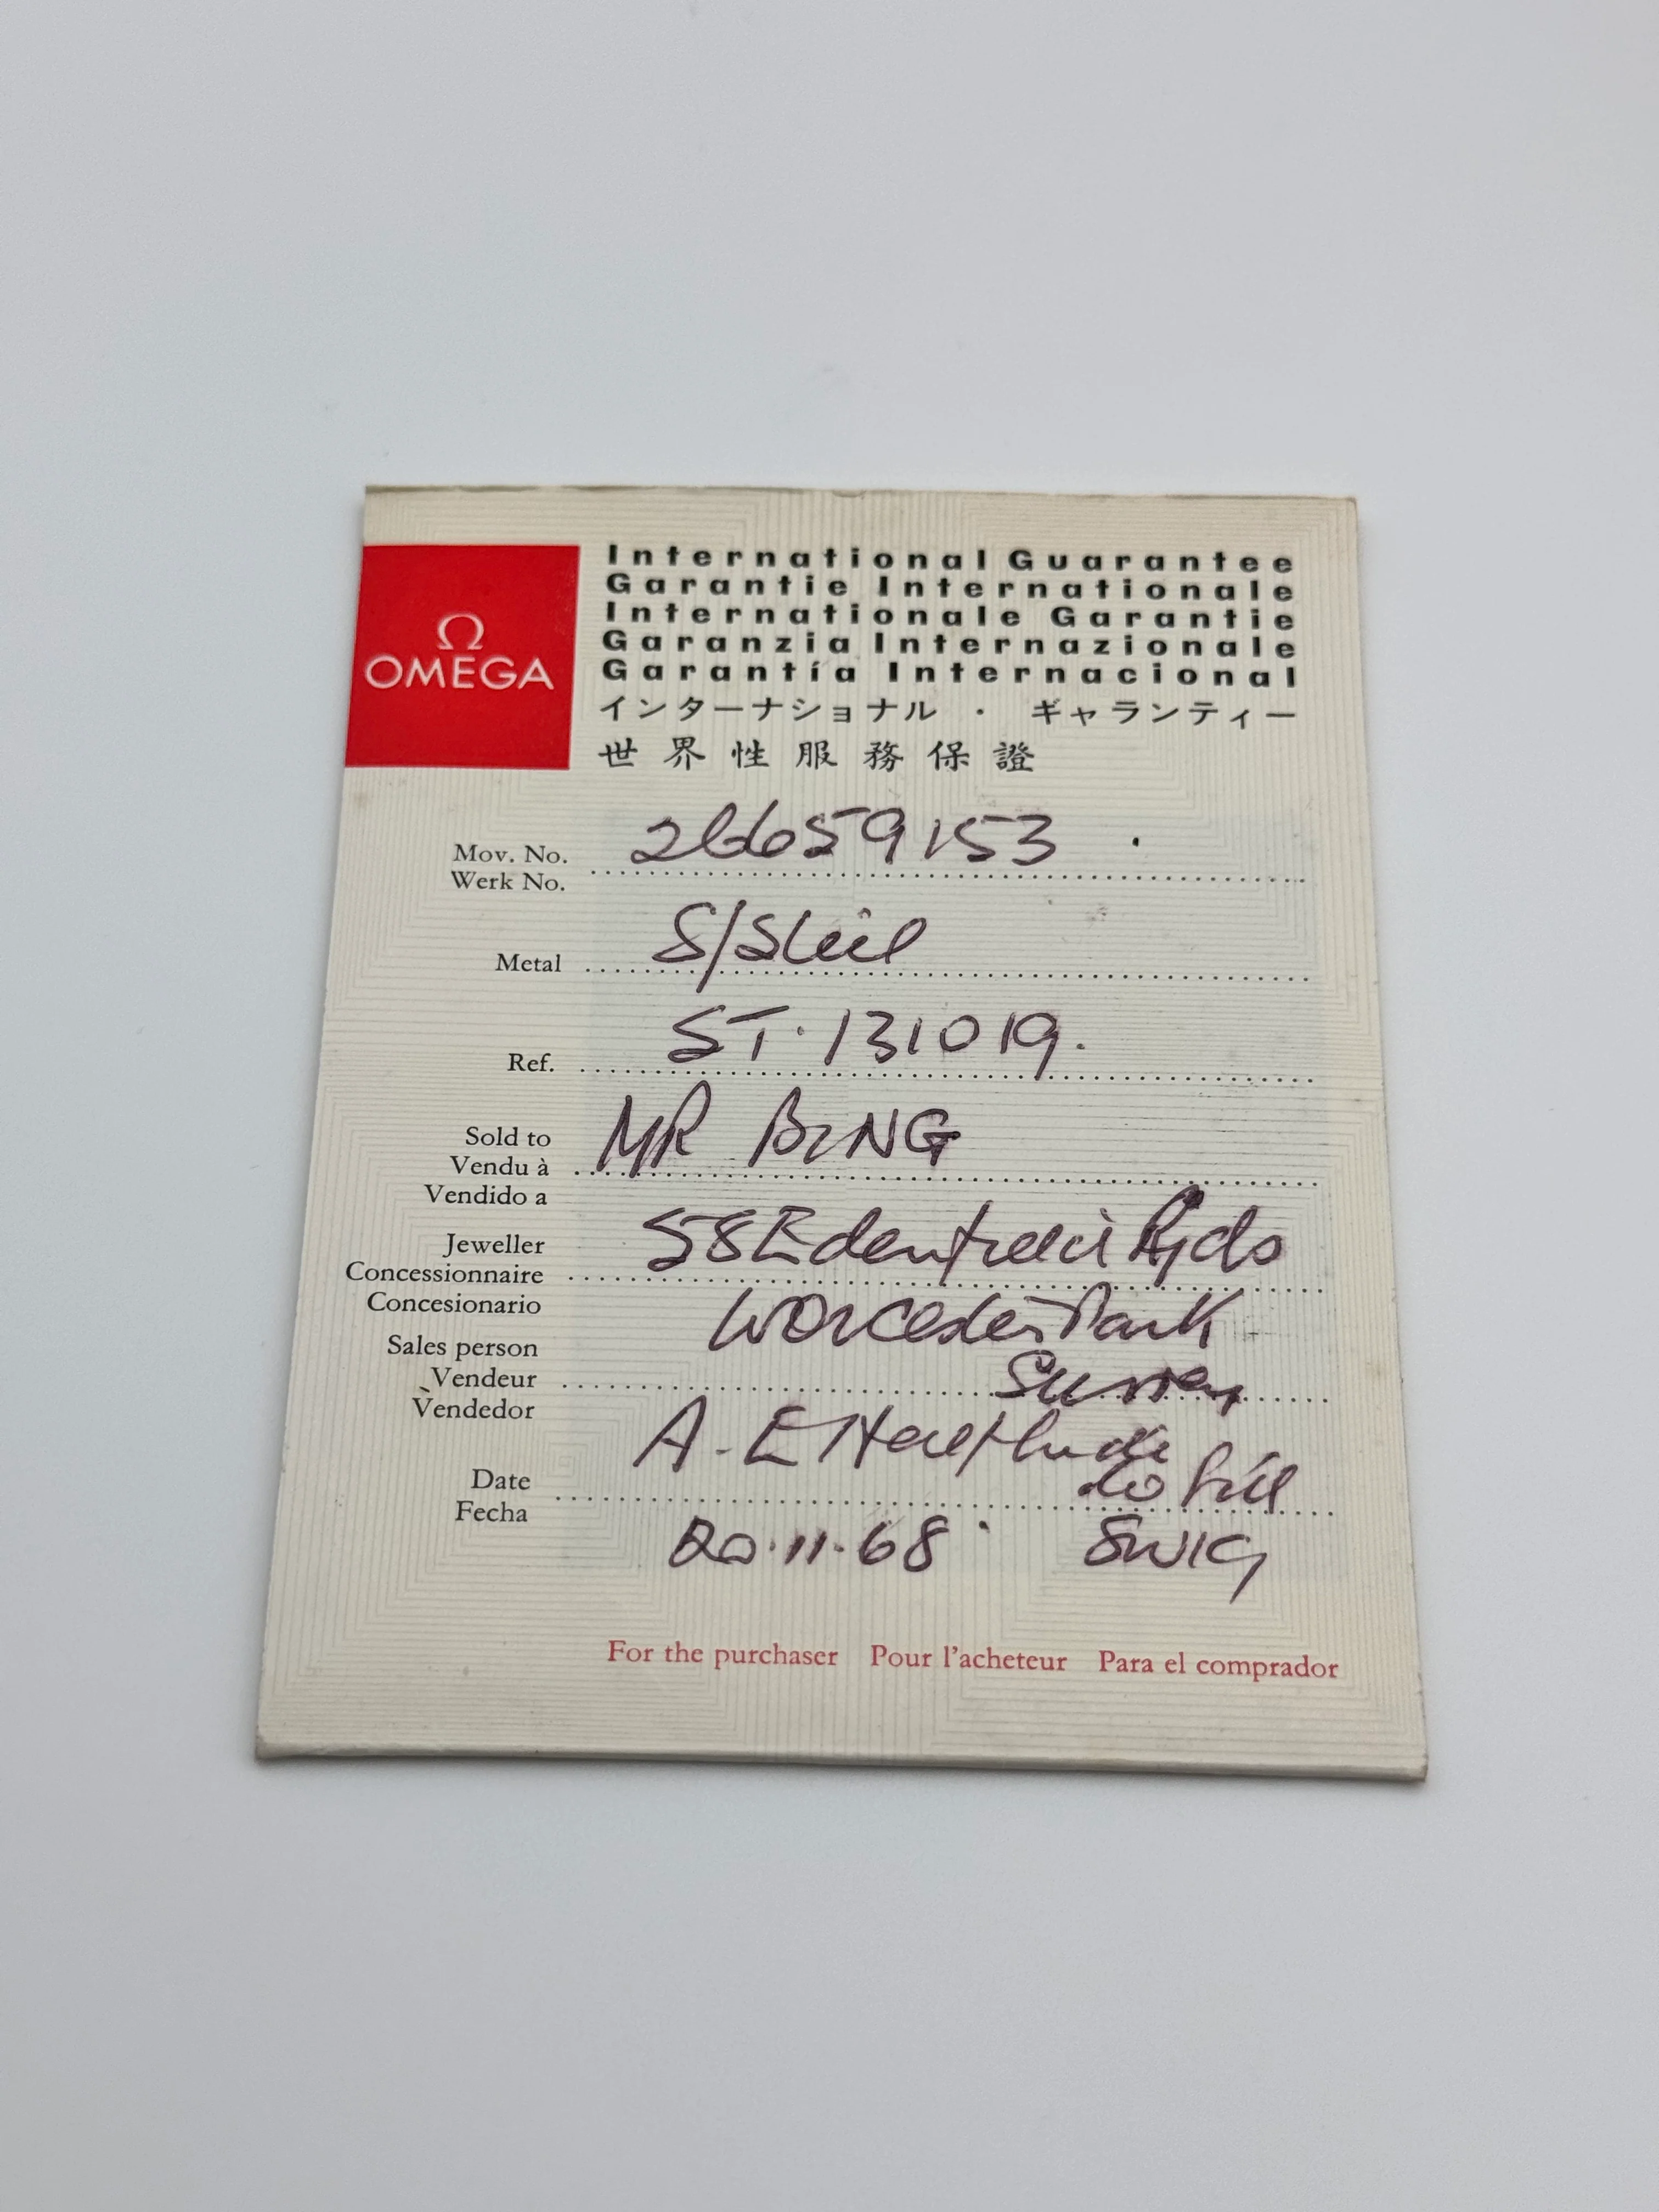 Ω
OMEGA
International Guarantee
Garantie Internationale
Internationale Garantie
Garanzia Internazionale
Garantía Internacional
インターナショナル · ギャランティー
世界性服務保證
Mov. No. 26659153 .
Werk No.
Metal S/Steel
Ref. ST. 131019.
Sold to MR BING
Vendu à
Vendido a
Jeweller 58 Rjds
Concessionnaire
Concesionario Worcester Park
Sales person
Vendeur Surrey
Vendedor
A. E
Date
Fecha
20.11.68 SW19
For the purchaser Pour l'acheteur Para el comprador